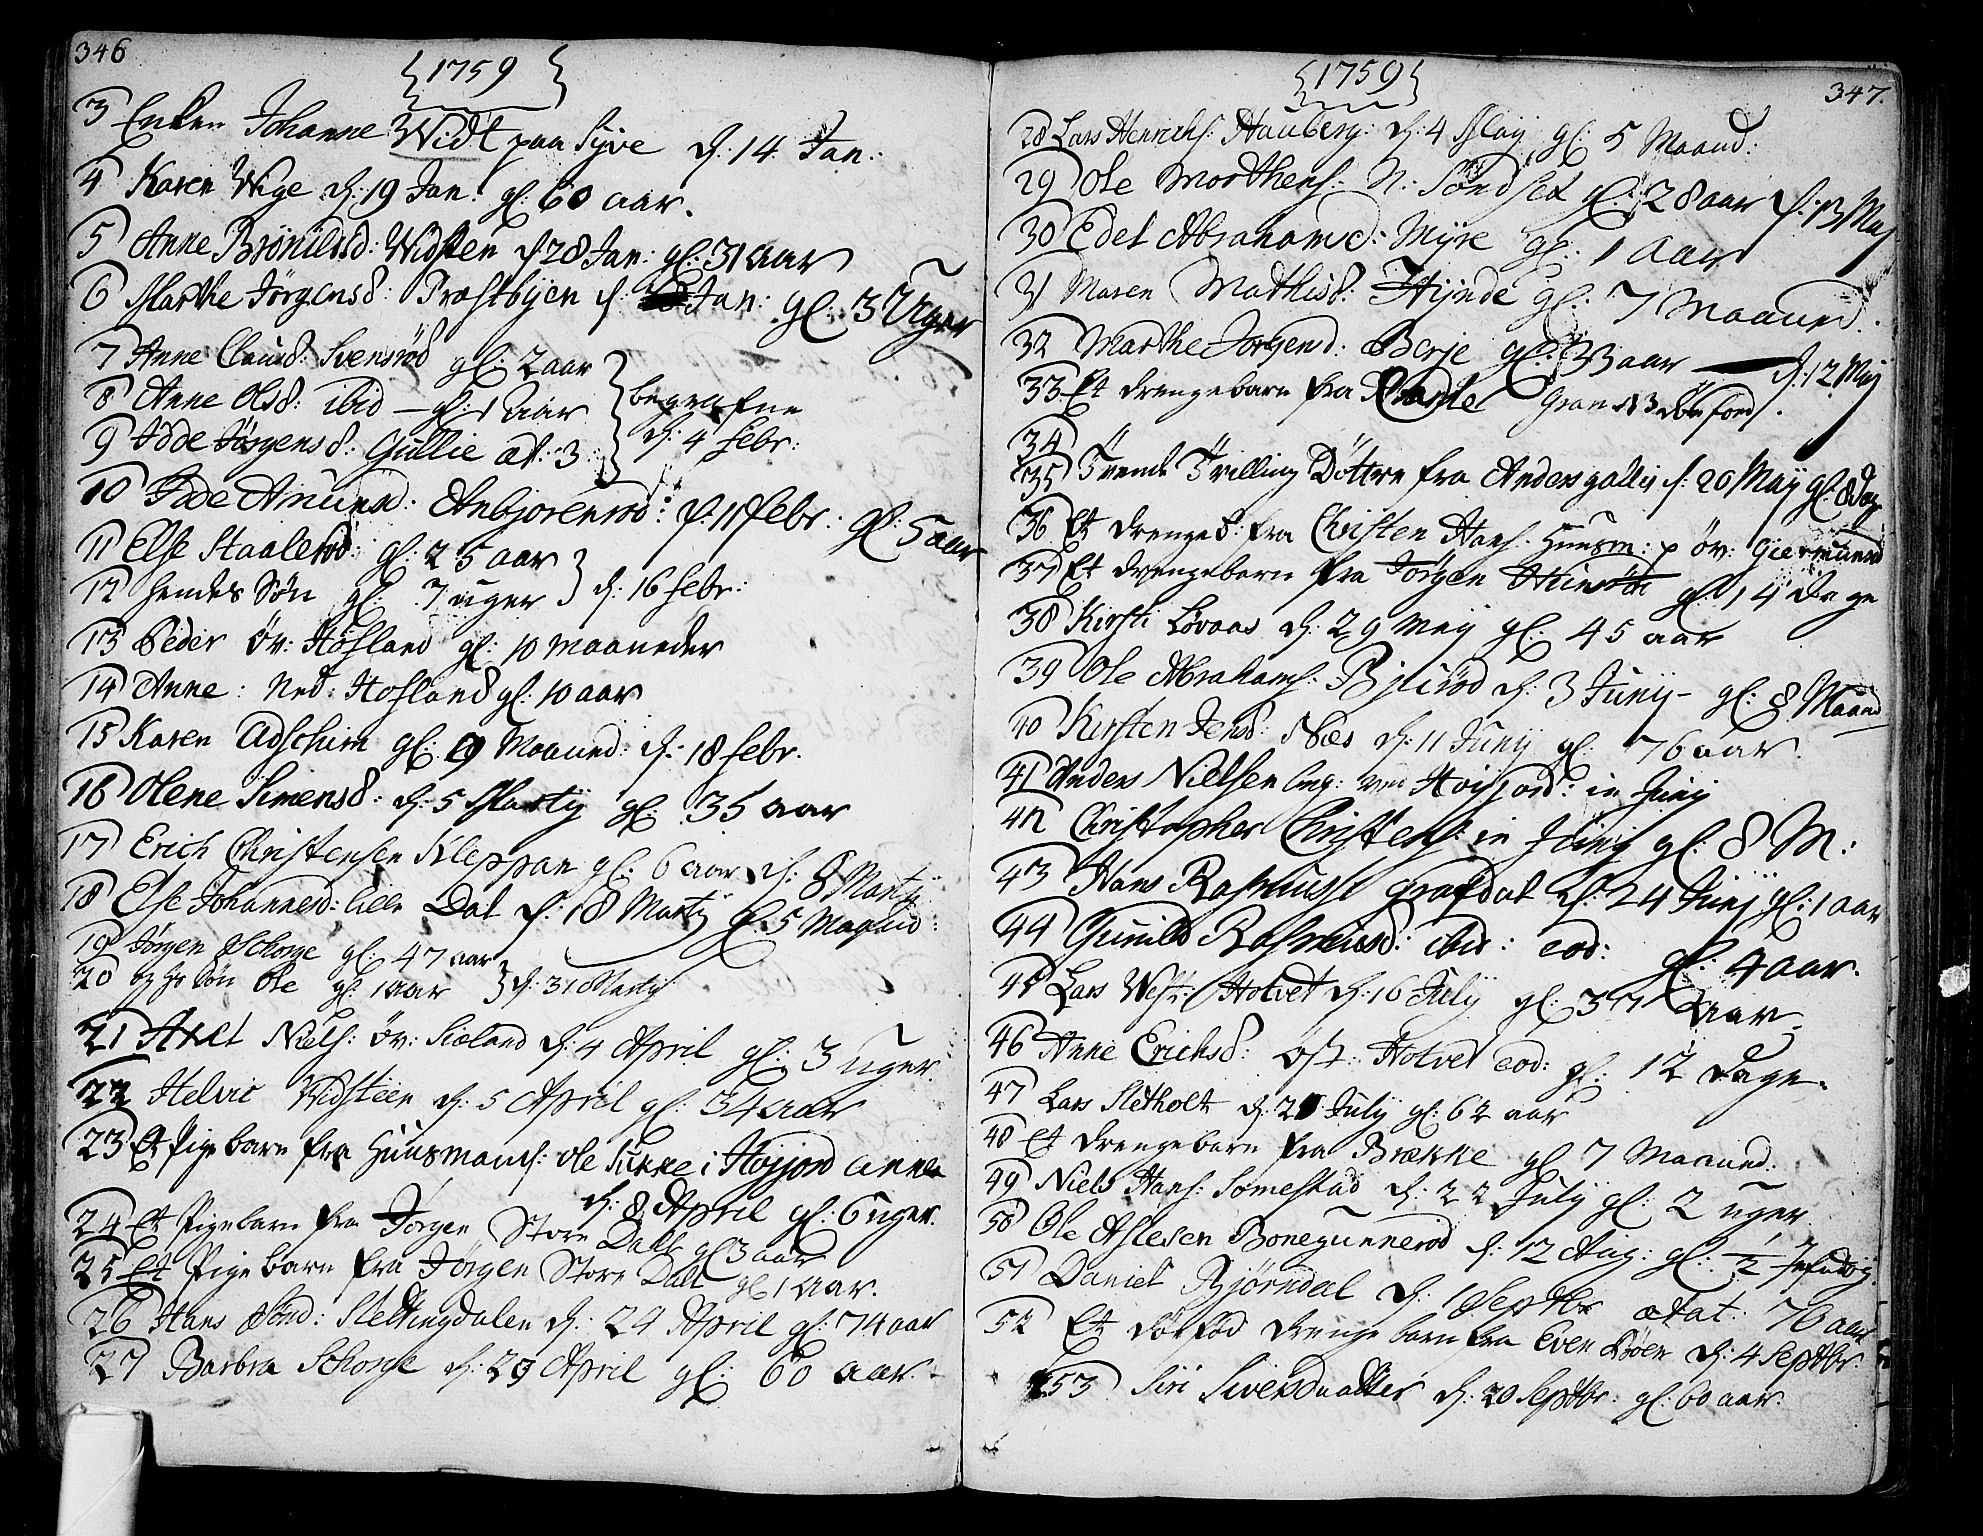 346
{1759}
3 Enken Johanne Widt paa Syve d: 14 Jan:
4 Karen Wige d: 19 Jan: gl: 60 aar.
5 Anne Brÿnilds: Widsten d 28 Jan: gl: 31 aar
6 Marthe Jørgensd: Præstbÿen d: Jan: gl: 3 Uger
7 Anne Clausd: Svensrød gl: 2 aar
8 Anne Olsd: ibid — gl: 1 aar
9 Adde Jørgensd: Gullie æt: 3
begrafne
d: 4 febr:
10 Ide Amunsd: Anbjørenrød: d: 11 febr: gl: 5 aar
11 Else Staalerød: gl: 25 aar
12 hendes Søn gl: 7 uger } d: 16 febr:
13 Peder Øv: Hofland gl: 10 maaneder
14 Anne: Ned: Hofland gl: 10 aar
15 Karen Adschim gl: 9 Maaned: d: 18 febr.
16 Olene Simensd: d: 5 Martÿ gl: 35 aar
17 Erich Christensen Kleppan gl: 6 aar d: 8 Martÿ
18 Else Johannesd: lille Dal d: 18 Martÿ gl: 5 Maaned:
19 Jørgen Schorge gl: 47 aar
20 og hs Søn Ole gl: 1 aar } d: 31 Martÿ
21 Axel Niels: Øv: Siøland d: 4 April gl: 3 uger.
22 Helvic Widsteen d: 5 April gl: 34 aar
23 Et Pigebarn fra Huusmand: Ole Sukke i Høÿjord annex
d: 8 April gl: 6 uger.
24 Et Pigebarn fra Jørgen Store Dahl gl 3 aar
25 Et Pigebarn fra Jørgen Store Dahl gl 1 aar.
26 Hans Sønd: Slettingdalen d: 24 April gl: 74 aar
27 Barbra Schorge d: 29 April gl: 60 aar.
{1759}
347.
28 Lars Henrichs: Hauberg: d: 4 Maÿ gl: 5 Maaned:
29 Ole Morthens: N: Søndset gl: 28 aar d: 13 Maj
30 Edel Abrahamsd: Mÿre gl: 1 aar
31 Maren Mathisd: Hÿnde gl: 7 Maaned.
32 Marthe Jørgensd: Berje gl: 33 aar — d: 12 Maÿ
33 Et drengebarn fra Gran
34
35 Tvende Trilling Døttre fra Anders gallis d: 20 Maÿ gl: 8 dag
36 Et drengeb: fra Christen Hans: Huusm: p øv: Giermund
37 Et drengebarn fra Jørgen gl: 14 dage
38 Kirsti Løvaas d: 29 Maÿ gl: 45 aar
39 Ole Abrahams: Bjerød d: 3 Junÿ gl: 8 Maaned
40 Kirsten Jensd: Næs d: 11 Junÿ gl: 76 aar.
41 Anders Nielsen Eng: ved Høÿjord: in Junÿ
42 Christopher Christens: in Junÿ gl: 8 M:
43 Hans Rasmuss: Grafdal d: 24 Junÿ gl: 1 aar
44 Gunild Rasmusd: ibid: eod: gl: 4 aar.
45 Lars West: Holvet d: 16 Julÿ gl: 37 aar
46 Anne Erichsd: Øst: Holvet eod: gl: 12 dage.
47 Lars Sletholt d: 21 Julÿ gl: 62 aar
48 Et drengebarn fra Brække gl 7 Maaned.
49 Niels Hans: Somestad d: 22 Julÿ gl: 2 uger
50 Ole Aslesen Bonegunnerød d: 12 Aug: gl: 1/2
51 Daniel Bjørndal d: 1 Septbr ætat: 76 aar
52 Et dødfød drengebarn fra Even Løøen d: 4 Septbr
53 Siri Siversdaatter d: 20 Septbr: gl: 60 aar.